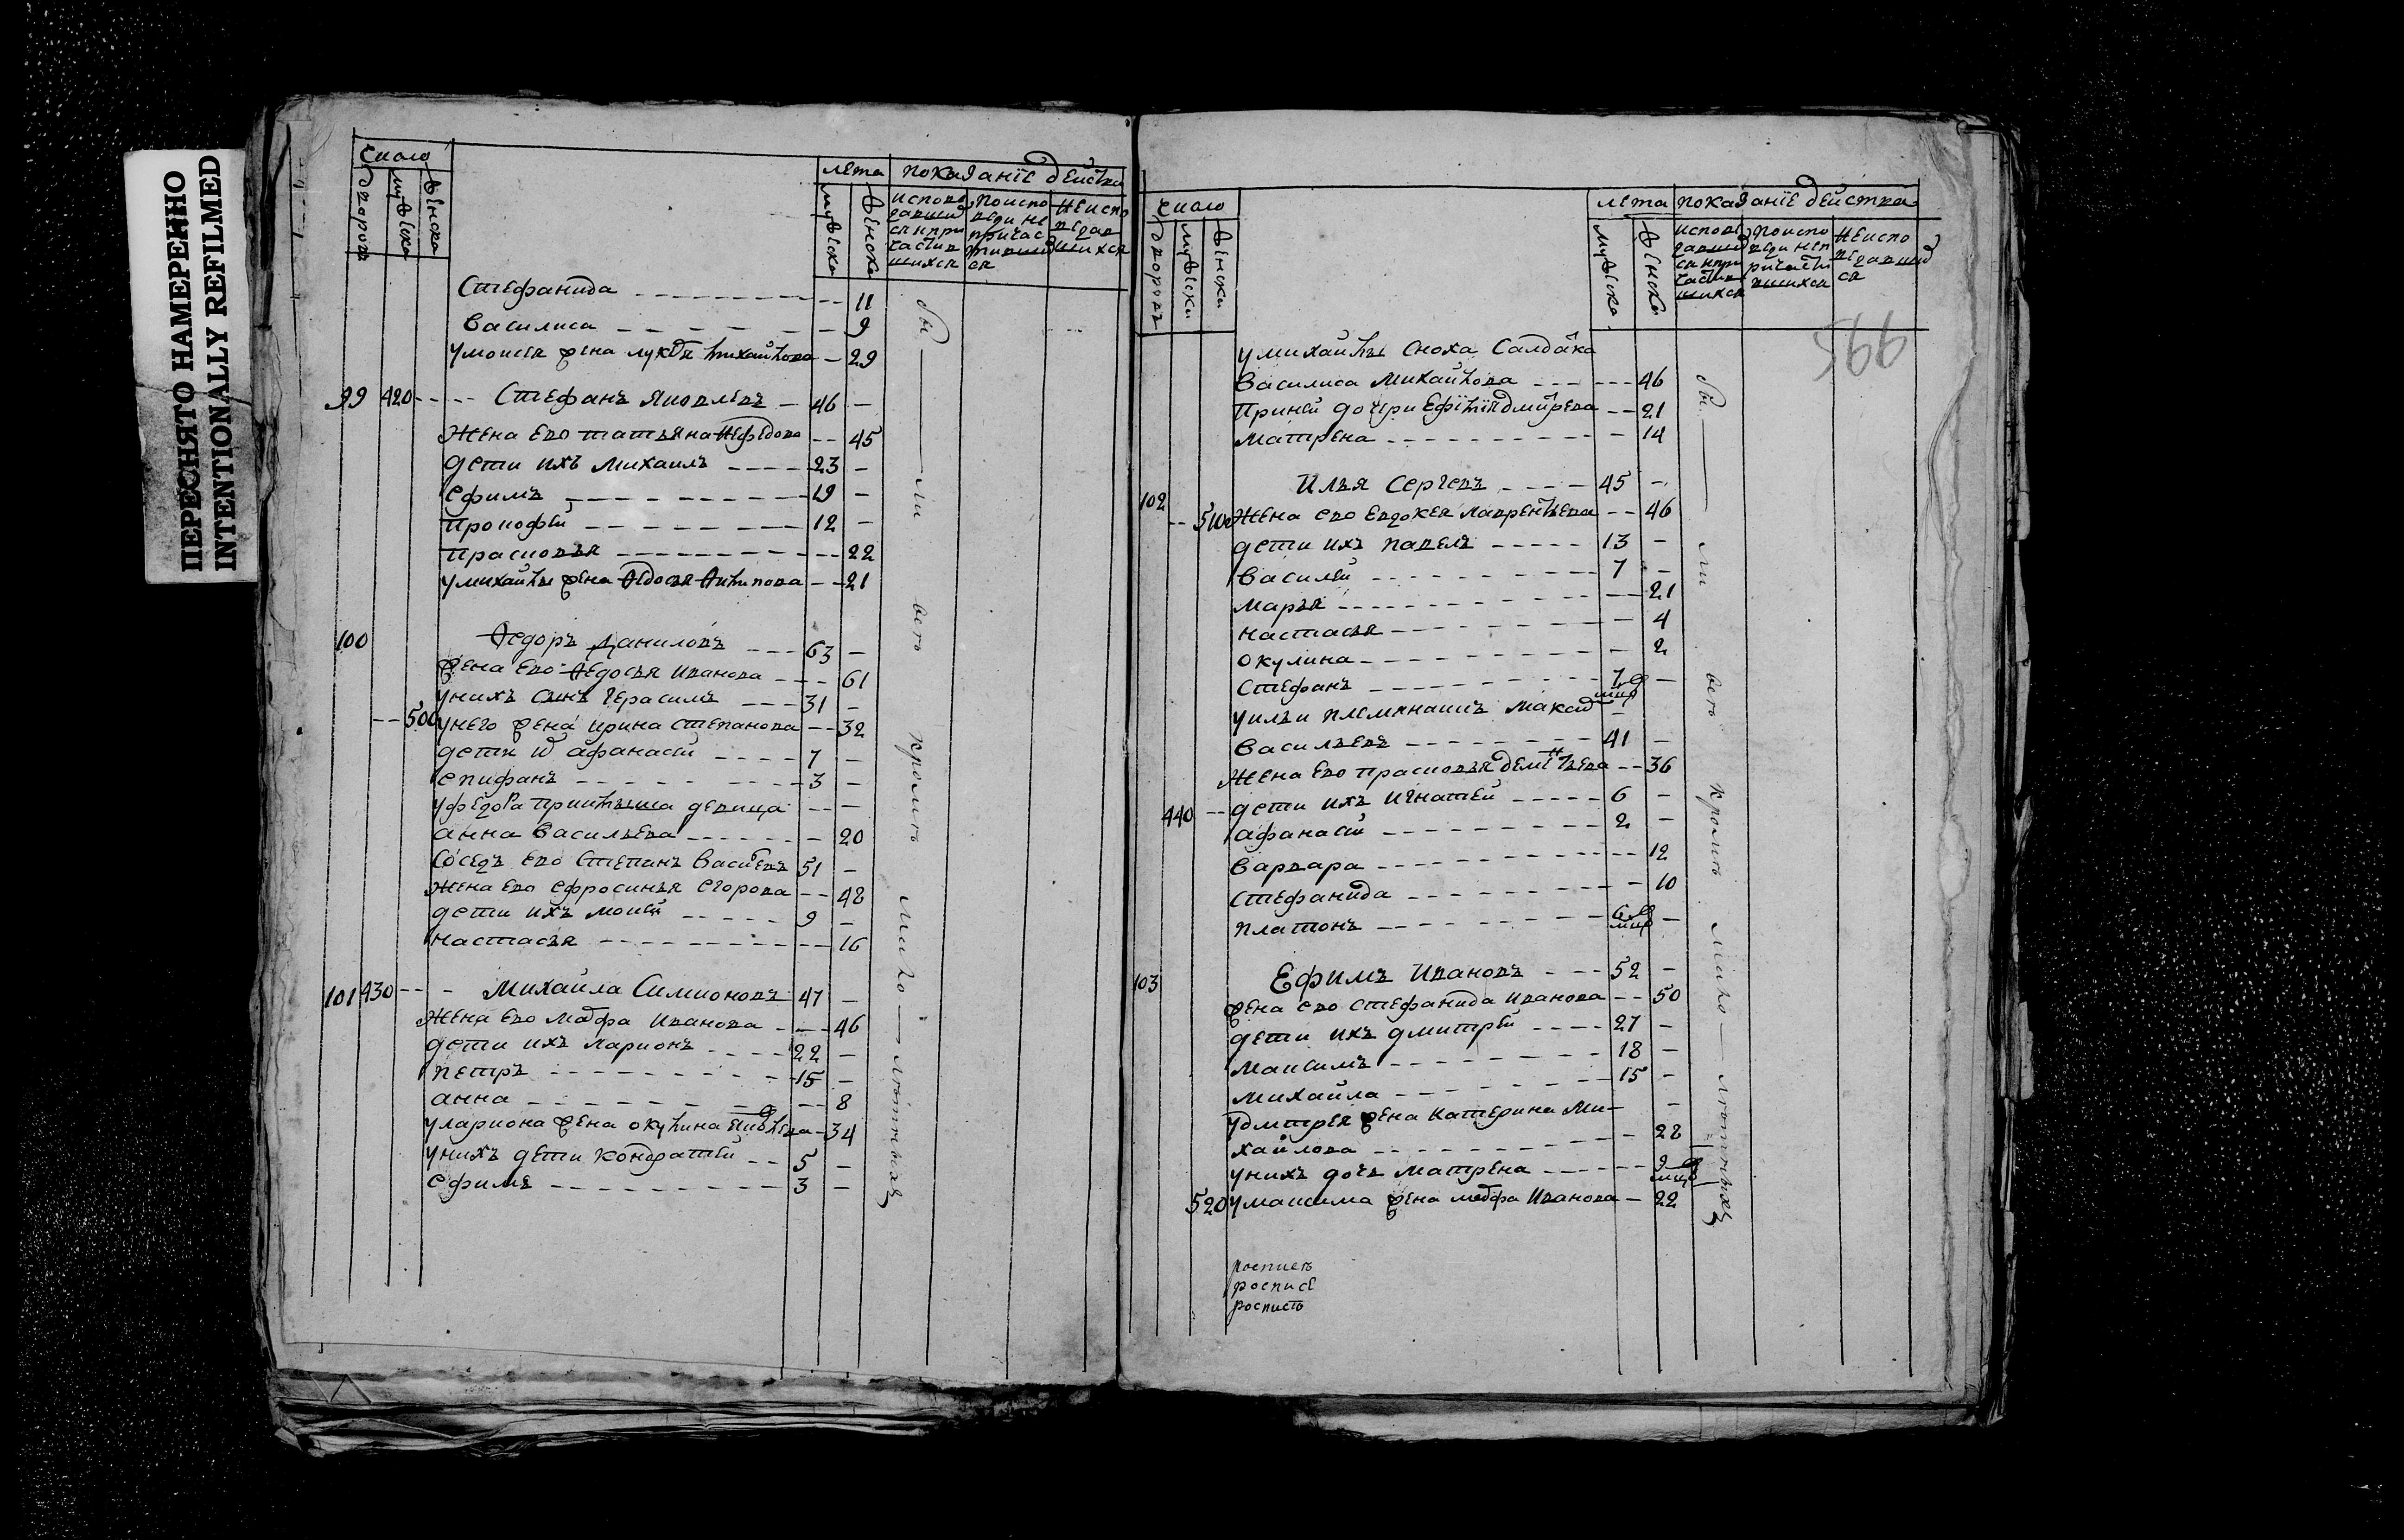 ПЕРЕСНЯТО НАМЕРЕННО
INTENTIONALLY REFILMED
число
дворовъ
мужеска
женска
лета
показаніе действа
мужеска
женска
исповедавшихся и причастившихся
по исповеди не причастившихся
не исповедавшихся
Стефанида 11
Василиса 9
у моисея жена лукерья михайлова 29
99 420 Стефанъ Яковлевъ 46
Жена ево татьяна Нефедова 45
дети ихъ Михаилъ 23
Ефимъ 19
Прокофей 12
Прасковья 22
у михайлы жена Федосья Антипова 21
100 Федоръ Даниловъ 63
жена ево Федосья Иванова 61
у нихъ сынъ Герасимъ 31
500 у него жена ирина степанова 32
дети афанасей 7
Епифанъ 3
у федора девица
анна Васильева 20
Соседъ ево Степанъ Васильевъ 51
Жена ево Ефросинья Егорова 48
дети ихъ мосей 9
Настасья 16
101 430 Михайла Симионовъ 47
Жена ево Марфа Иванова 46
дети ихъ ларионъ 22
Петръ 15
анна 8
у лариона жена окулина 34
у нихъ дети Кондратей 5
Ефимъ 3
вси кроме мало летныхъ
число
дворовъ
мужеска
женска
лета
показаніе действа
мужеска
женска
исповедавшихся и причастившихся
по исповеди не причастившихся
не исповедавшихся
995
у михайлы сноха Салдатка
Василиса Михайлова 46
При ней дочери Ефимія дмитрева 21
Матрена 14
102 Илья Сергевъ 45
510 Жена ево Евдокея лаврентьева 46
дети ихъ павелъ 13
Василей 7
Марья 21
Настасья 4
окулина 2
Стефанъ 7 мцов
у ильи племянникъ Максим
Васильевъ 41
Жена ево прасковья дементьева 36
440 дети ихъ игнатей 6
афанасей 2
Варвара 12
Стефанида 10
Платонъ 6 мцов
103 Ефимъ Ивановъ 52
жена ево Стефанида Иванова 50
дети ихъ дмитрей 27
Максимъ 18
Михайла 15
у дмитрея жена катерина Ми-
хайлова 28
у нихъ дочь матрена 9 мцов
520 у максима жена марфа Иванова 22
вси кроме мало летныхъ
роспись
роспись
роспись